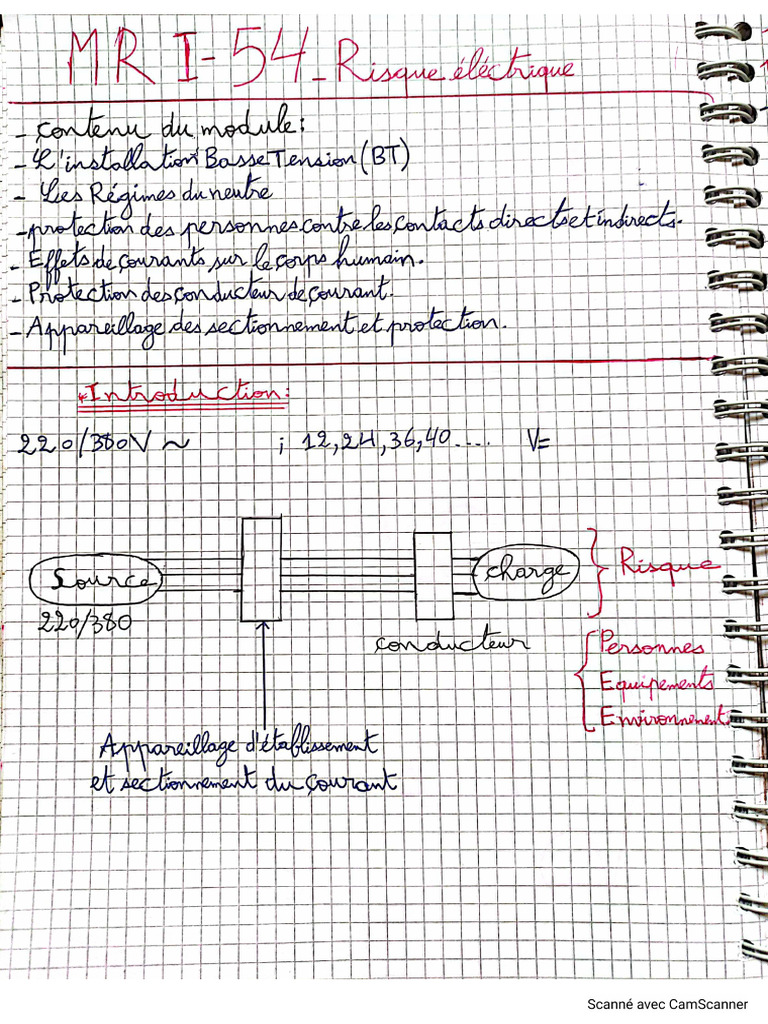 MRI-54-Risque électrique
- Contenu du module:
- L'installation Basse Tension (BT)
- Les Régimes du neutre
- protection des personnes contre les contacts directs et indirects.
- Effets de courants sur le corps humain.
- Protection des conducteur de courant.
- Appareillage des sectionnement et protection.
* Introduction:
220/380V ~ ; 12,24,36,40.... V=
Source
Charge
Risque
220/380
conducteur
Personnes
Equipements
Environnement
Appareillage d'établissement
et sectionnement du courant
Scanné avec CamScanner